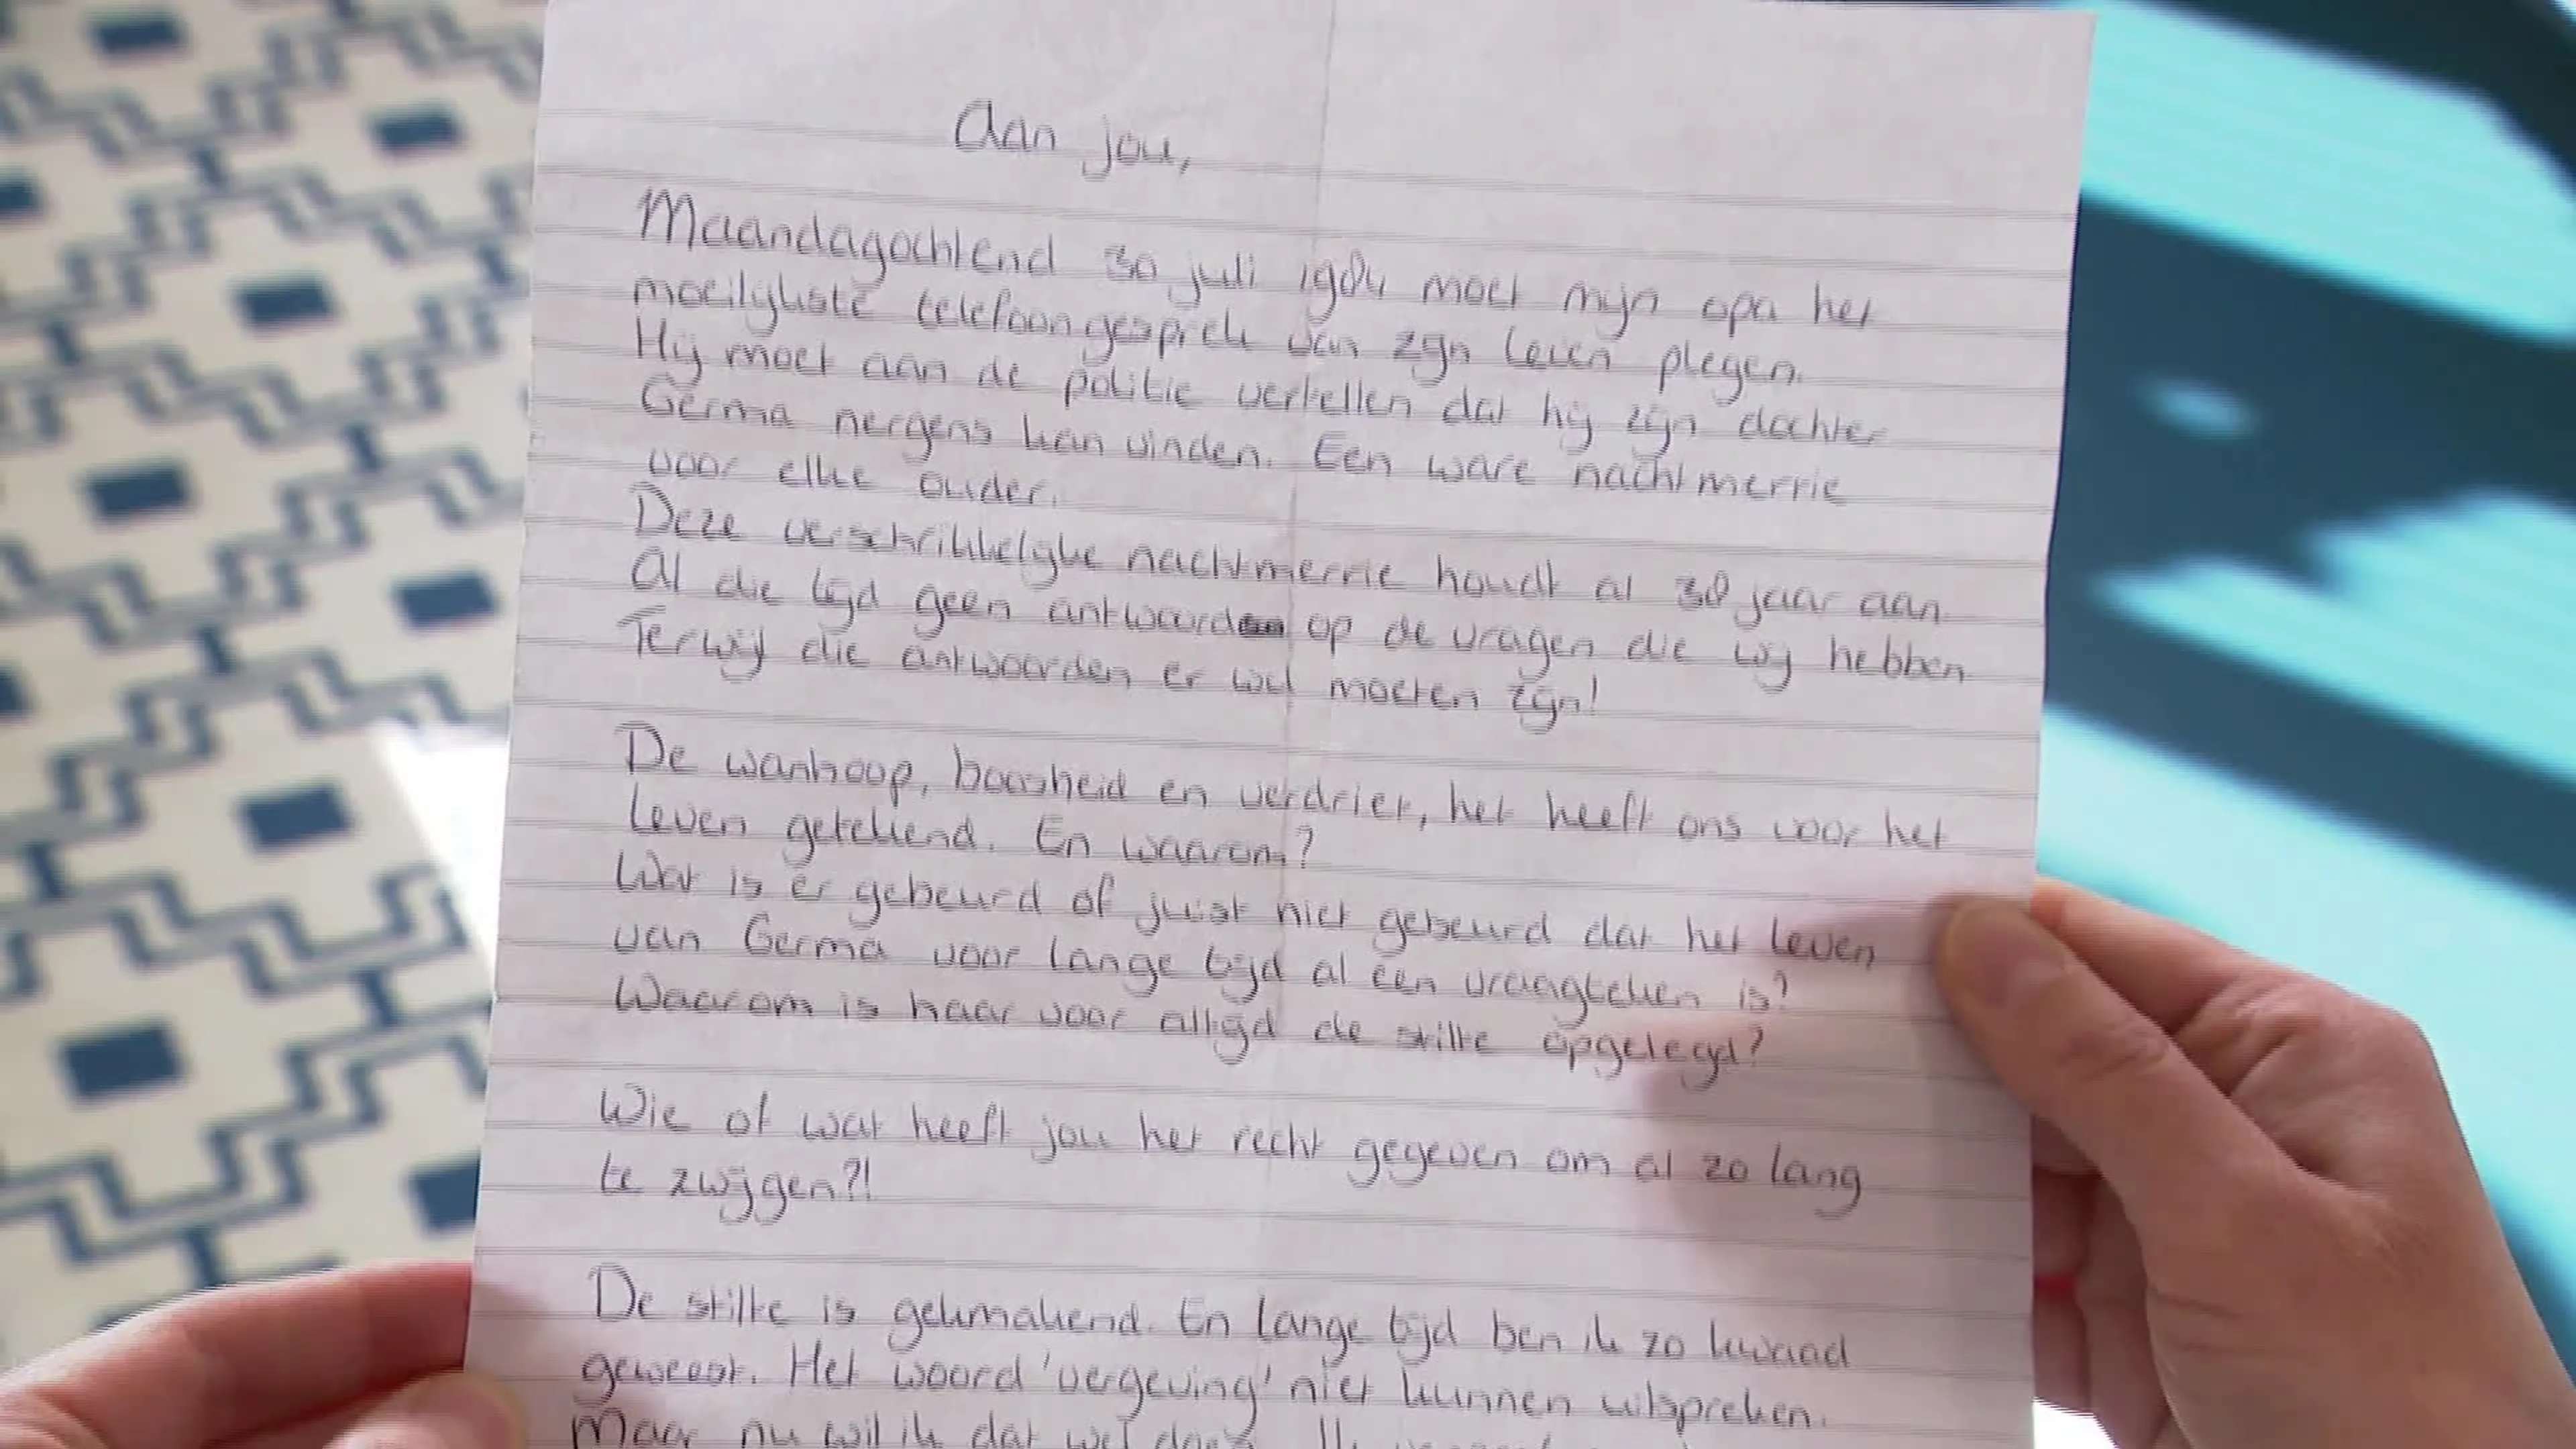 Aan jou,
Maandagochtend 30 juli 1984 moet mijn opa het
moeilijkste telefoongesprek van zijn leven plegen.
Hij moet aan de politie vertellen dat hij zijn dochter
Germa nergens kan vinden. Een ware nachtmerrie
voor elke ouder.
Deze verschrikkelijke nachtmerrie houdt al 38 jaar aan.
Al die tijd geen antwoord op de vragen die wij hebben
Terwijl die antwoorden er wel moeten zijn!
De wanhoop, boosheid en verdriet, het heeft ons voor het
leven getekend. En waarom?
Wat is er gebeurd of juist niet gebeurd dat het leven
van Germa voor lange tijd al een vraagteken is?
Waarom is haar voor altijd de stilte opgelegd?
Wie of wat heeft jou het recht gegeven om al zo lang
te zwijgen?!
De stilte is gekmakend. En lange tijd ben ik zo kwaad
geweest. Het woord 'vergeving' niet kunnen uitspreken.
Maar nu wil ik dat wel doen. Ik